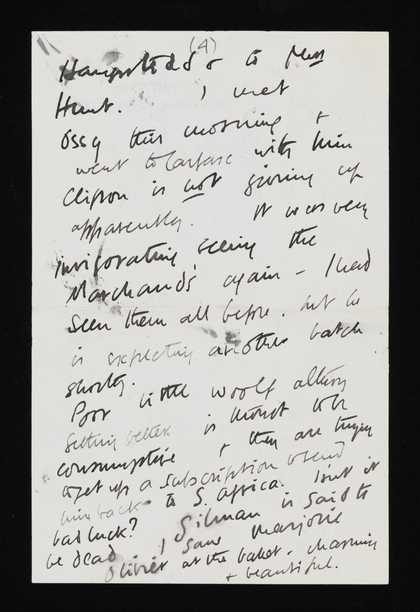 (4)
Hampstead & to Miss
Hunt. I met
Ossy this morning &
went to Carfax with him
Clifton is not giving up
apparently. It was very
invigorating seeing the
Marchands again – I had
seen them all before. but he
is expecting another batch
shortly.
Poor little Woolf altho
getting better is thought to be
consumptive & they are trying
to get up a subscription to send
him back to S. Africa. Isn't it
bad luck? Gilman is said to
be dead. I saw Marjorie
Olivier at the ballet. charming
& beautiful.